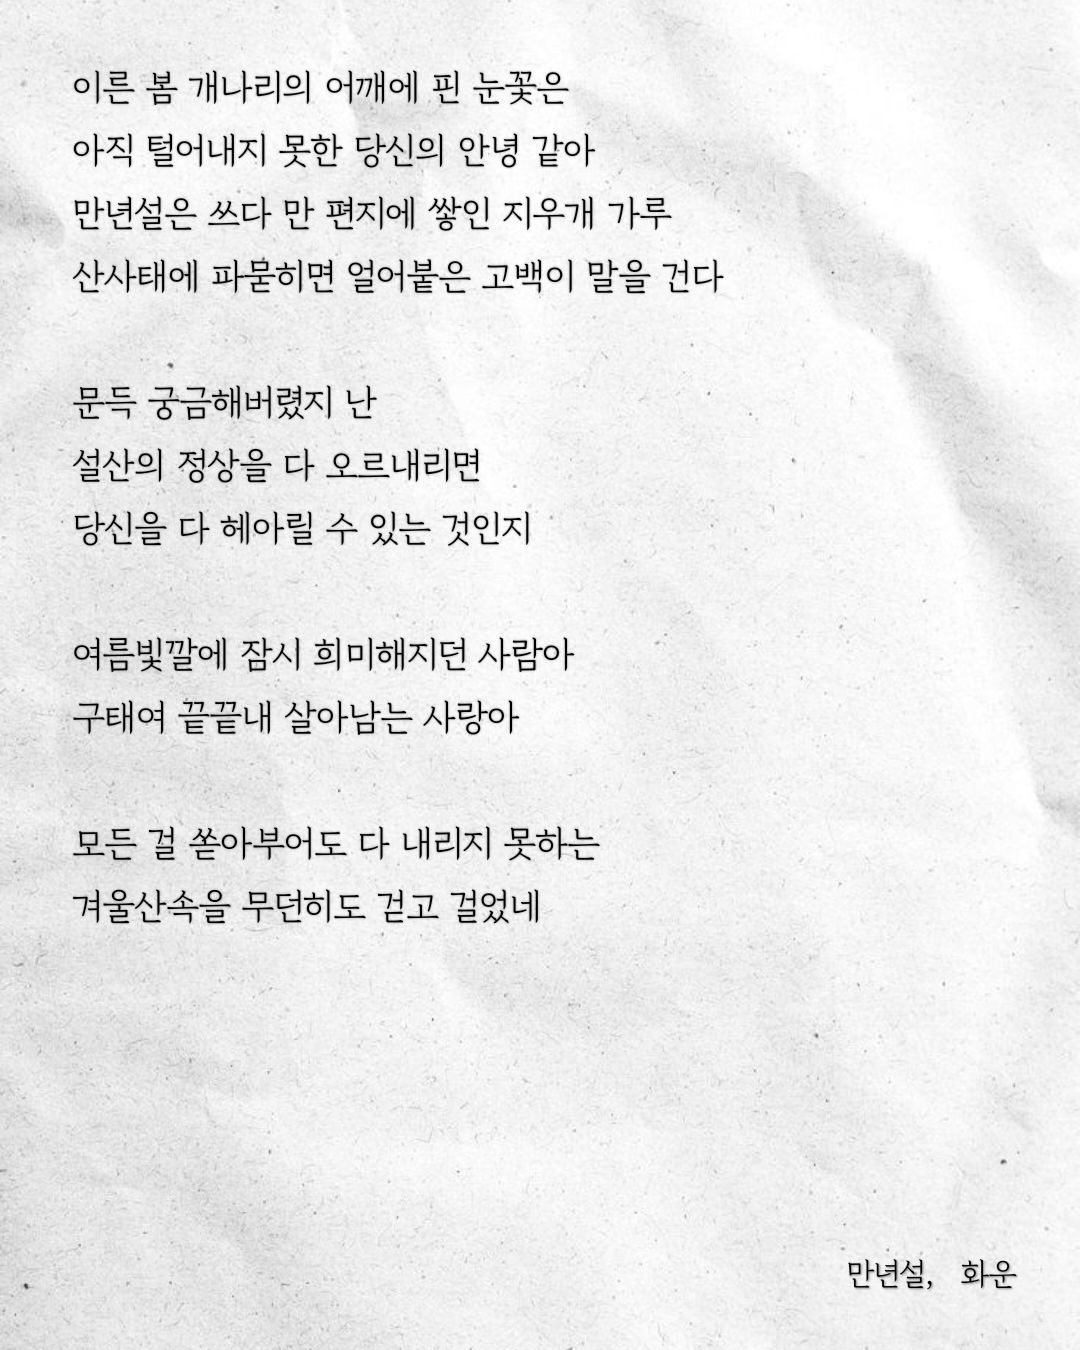 이른 봄 개나리의 어깨에 핀 눈꽃은
아직 털어내지 못한 당신의 안녕 같아
만년설은 쓰다 만 편지에 쌓인 지우개 가루
산사태에 파묻히면 얼어붙은 고백이 말을 건다
문득 궁금해버렸지 난
설산의 정상을 다 오르내리면
당신을 다 헤아릴 수 있는 것인지
여름빛깔에 잠시 희미해지던 사람아
구태여 끝끝내 살아남는 사랑아
모든 걸 쏟아부어도 다 내리지 못하는
겨울산속을 무던히도 걷고 걸었네
만년설, 화운